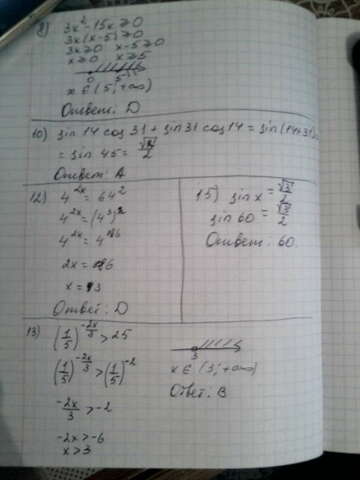 3x² - 15x ≥ 0
3x(x-5) ≥ 0
3x ≥ 0 x-5 ≥ 0
x ≥ 0 x ≥ 5
0 5
x ∈ (5; +∞)
Ответ: D
10) sin 14 cos 31 + sin 31 cos 14 = sin(14+31)
= sin 45 = √2/2
Ответ: A
12) 4^2x = 64²
4^2x = (4³)²
4^2x = 4^6
2x = 6
x = 3
Ответ: D
15) sin x = √3/2
sin 60 = √3/2
Ответ: 60.
13) (1/5)^(-2x/3) > 25
(1/5)^(-2x/3) > (1/5)^-2
-2x/3 > -2
-2x > -6
x > 3
3
x ∈ (3; +∞)
Ответ: B